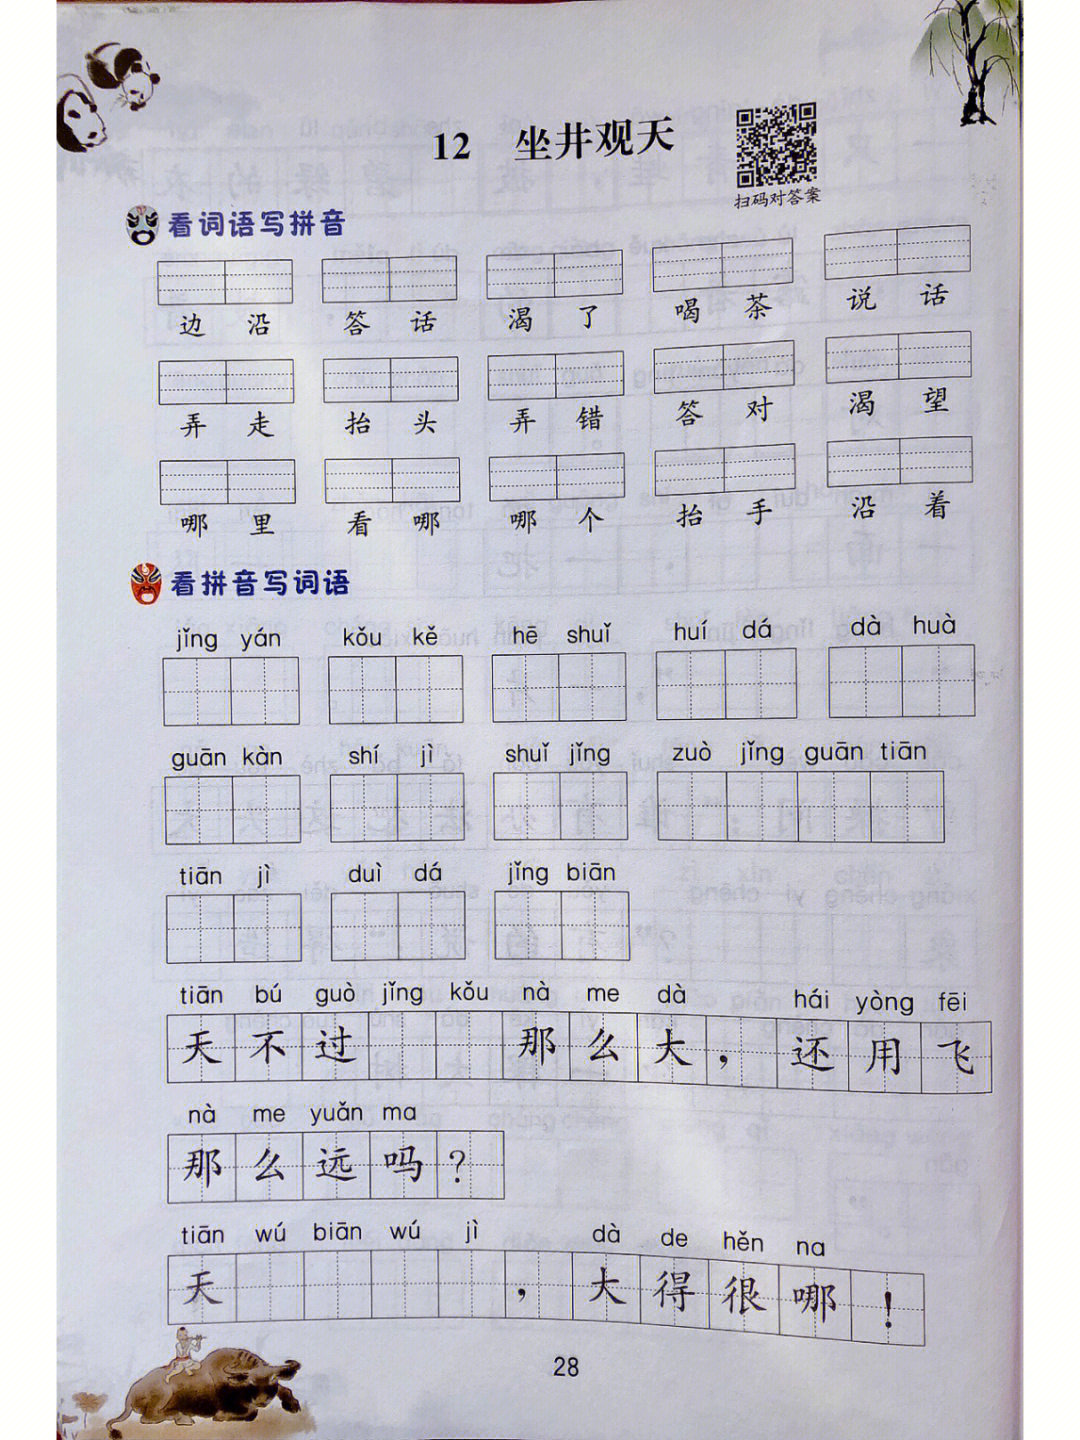 12 坐井观天
扫码对答案
看词语写拼音
边沿 答话 渴了 喝茶 说话
弄走 抬头 弄错 答对 渴望
哪里 看哪 哪个 抬手 沿着
看拼音写词语
jǐng yán kǒu kě hē shuǐ huí dá dà huà
guān kàn shí jì shuǐ jǐng zuò jǐng guān tiān
tiān jì duì dá jǐng biān
tiān bú guò jǐng kǒu nà me dà hái yòng fēi
天不过 那么大，还用飞
nà me yuǎn ma
那么远吗？
tiān wú biān wú jì dà de hěn na
天 ，大得很哪！
28